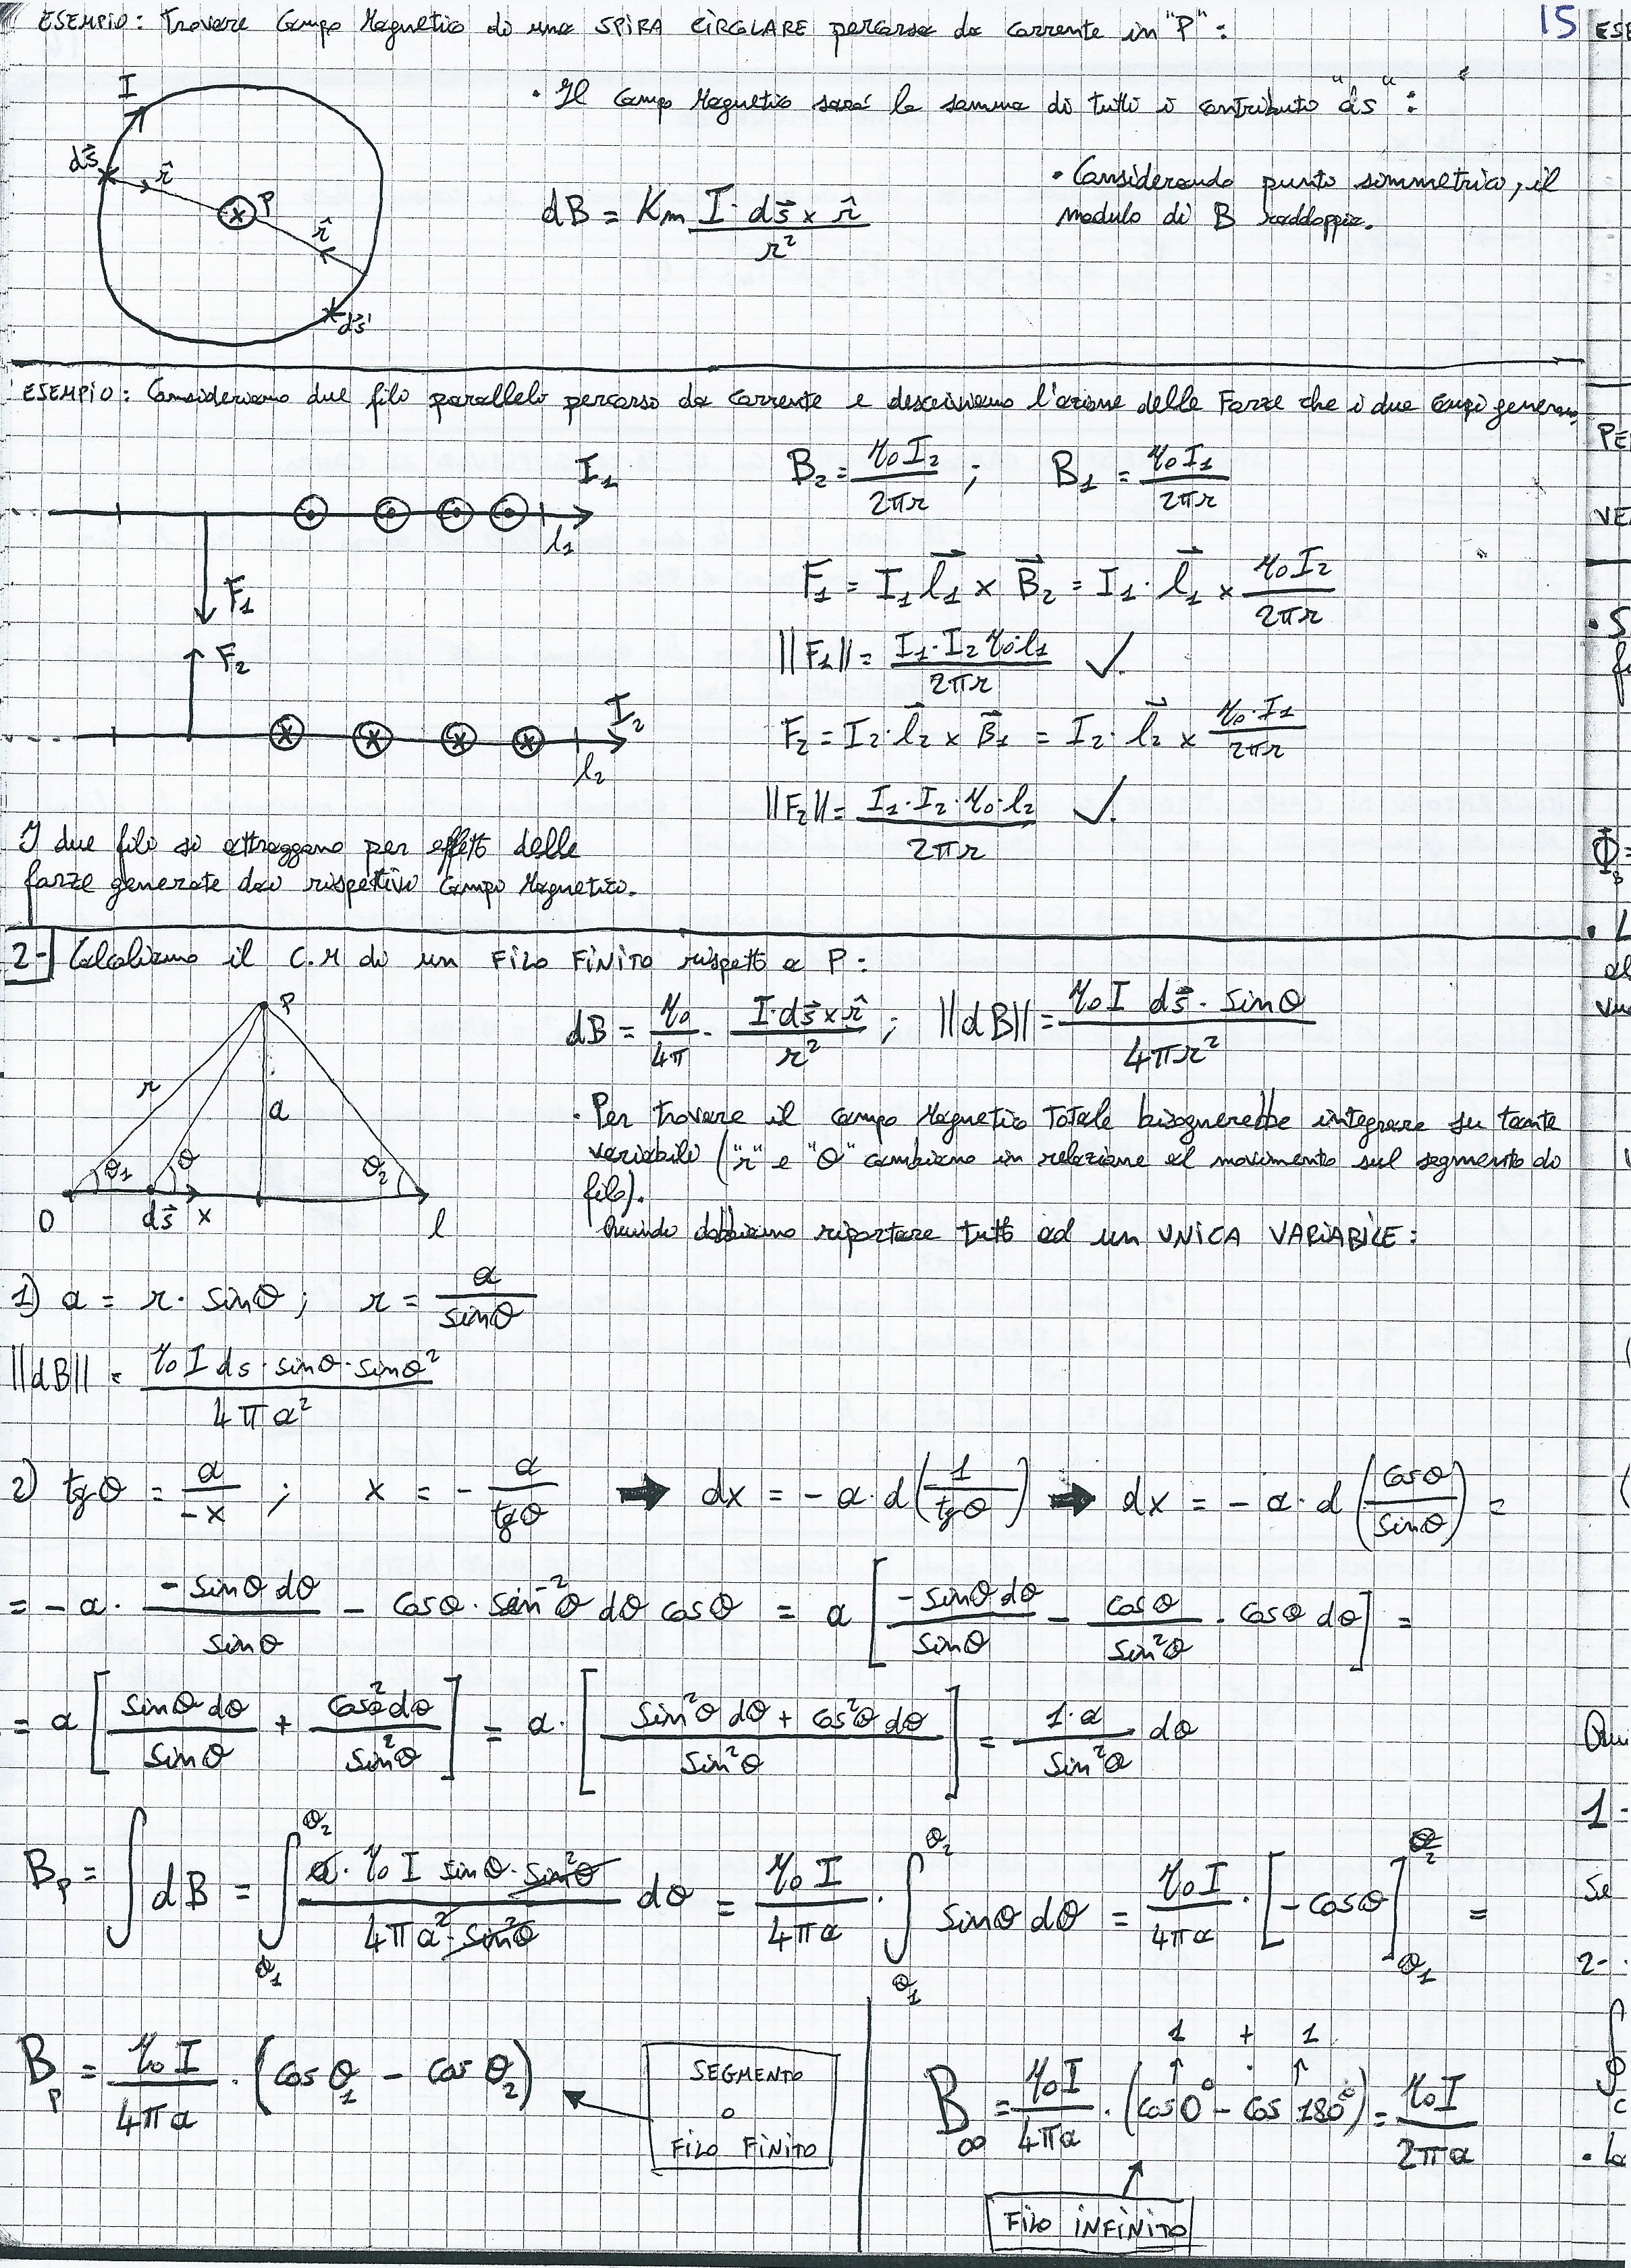 ESEMPIO: Trovare Campo Magnetico di una SPIRA CIRCOLARE percorsa da corrente in "P":
15
I
• Il Campo Magnetico sarà la somma di tutti i contributo "ds":
ds⃗
r̂
P
r̂
ds⃗'
dB = Km I·ds⃗ x r̂ / r²
• Considerando punto simmetrico, il
modulo di B raddoppia.
ESEMPIO: Consideriamo due fili paralleli percorsi da corrente e descriviamo l'azione delle Forze che i due campi generano
I₁
l₁
F₁
F₂
I₂
l₂
B₂ = μ₀I₂ / 2πr ; B₁ = μ₀I₁ / 2πr
F₁ = I₁ l₁⃗ x B⃗₂ = I₁ · l₁⃗ x μ₀I₂ / 2πr
||F₁|| = I₁·I₂ μ₀·l₁ / 2πr ✓.
F₂ = I₂·l₂⃗ x B⃗₁ = I₂· l₂⃗ x μ₀·I₁ / 2πr
||F₂|| = I₁·I₂·μ₀·l₂ / 2πr ✓.
I due fili si attraggono per effetto delle
forze generate dai rispettivi Campo Magnetico.
2-| Calcoliamo il C.M di un FILO FINITO rispetto a P:
P
r
a
θ₁
θ
θ₂
0
ds⃗
x
l
dB = μ₀ / 4π · I·ds⃗ x r̂ / r² ; ||dB|| = μ₀ I ds⃗ · sinθ / 4πr²
• Per trovare il campo Magnetico Totale bisognerebbe integrare su tante
variabili ("r" e "θ" cambiano in relazione al movimento sul segmento di
filo).
Quindi dobbiamo riportare tutto ad un UNICA VARIABILE:
1) a = r · sinθ ; r = a / sinθ
||dB|| = μ₀ I ds · sinθ · sinθ² / 4πa²
2) tgθ = a / -x ; x = - a / tgθ ➡ dx = - a·d(1 / tgθ) ➡ dx = - a·d(cosθ / sinθ) =
= -a · -sinθ dθ / sinθ - cosθ · sin⁻²θ dθ cosθ = a [-sinθ dθ / sinθ - cosθ / sin²θ · cosθ dθ] =
= a [sinθ dθ / sinθ + cos²θ dθ / sin²θ] = a· [sin²θ dθ + cos²θ dθ / sin²θ] = 1·a / sin²θ dθ
Bₚ = ∫ dB = ∫ θ₁ θ₂ a · μ₀ I sinθ · sin²θ / 4πa² · sin²θ dθ = μ₀ I / 4πa · ∫ θ₁ θ₂ sinθ dθ = μ₀ I / 4πa · [-cosθ] θ₁ θ₂ =
Bₚ = μ₀ I / 4πa · (cosθ₁ - cosθ₂)
SEGMENTO
o
FILO FINITO
1 + 1
B∞ = μ₀I / 4πa · (cos0° - cos 180°) = μ₀I / 2πa
FILO INFINITO